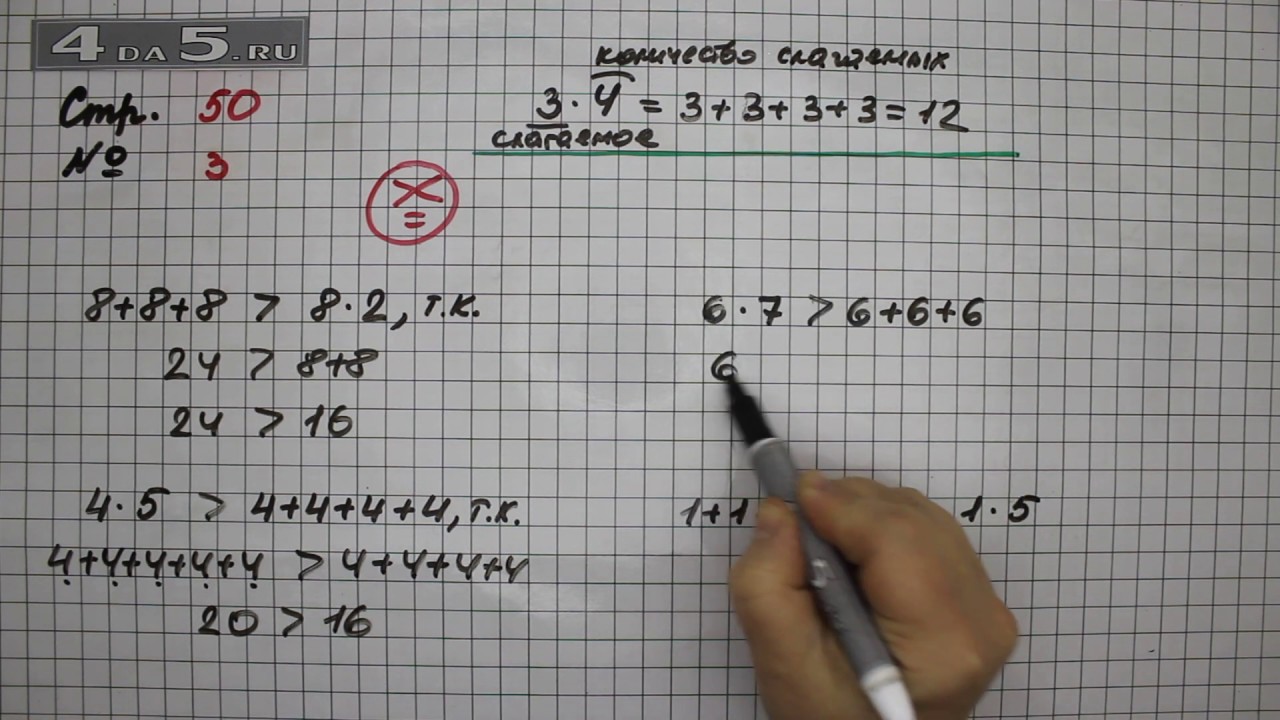 4DA5.RU
Стр. 50
№ 3
количество слагаемых
3 · 4 = 3+3+3+3=12
слагаемое
×
=
8+8+8 > 8·2, т.к.
24 > 8+8
24 > 16
4·5 > 4+4+4+4, т.к.
4+4+4+4+4 > 4+4+4+4
20 > 16
6·7 > 6+6+6
6
1+1 1·5